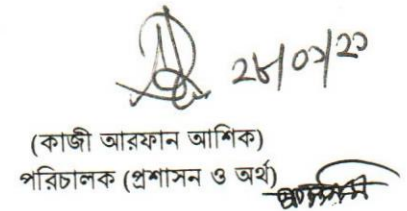 ২৮/০১/২১
(কাজী আরফান আশিক)
পরিচালক (প্রশাসন ও অর্থ)